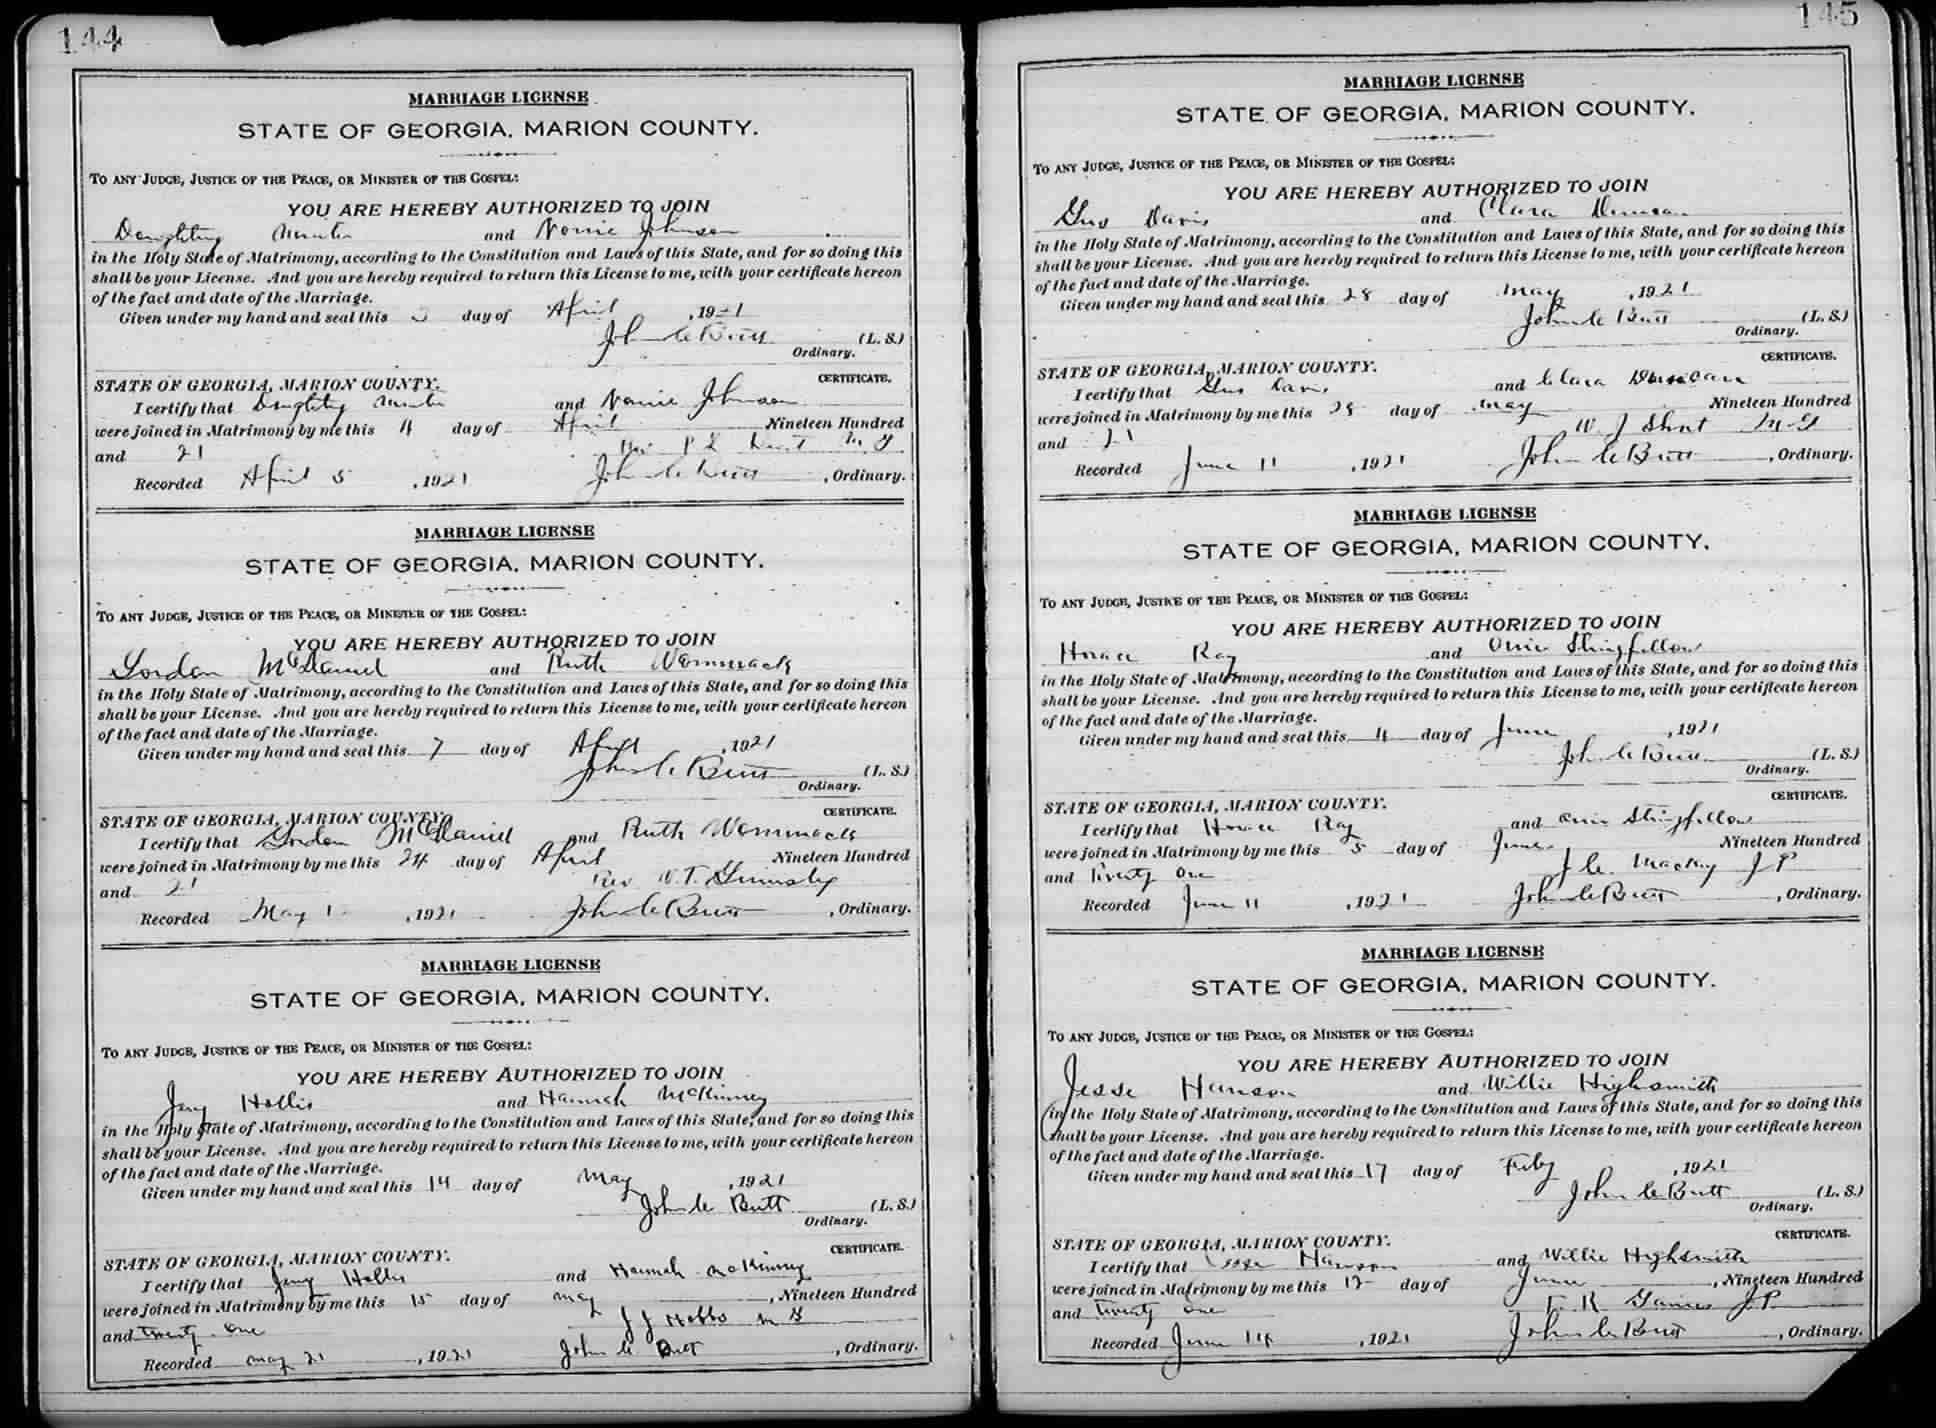 144
MARRIAGE LICENSE
STATE OF GEORGIA, MARION COUNTY.
TO ANY JUDGE, JUSTICE OF THE PEACE, OR MINISTER OF THE GOSPEL:
YOU ARE HEREBY AUTHORIZED TO JOIN
and Johnson
in the Holy State of Matrimony, according to the Constitution and Laws of this State, and for so doing this
shall be your License. And you are hereby required to return this License to me, with your certificate hereon
of the fact and date of the Marriage.
Given under my hand and seal this day of April , 1921
John C Butt (L. S.)
Ordinary.
CERTIFICATE.
STATE OF GEORGIA, MARION COUNTY.
I certify that and Johnson
were joined in Matrimony by me this 4 day of April Nineteen Hundred
and 21 M G
Recorded April 5 , 1921 John C Butt , Ordinary.
MARRIAGE LICENSE
STATE OF GEORGIA, MARION COUNTY.
TO ANY JUDGE, JUSTICE OF THE PEACE, OR MINISTER OF THE GOSPEL:
YOU ARE HEREBY AUTHORIZED TO JOIN
Gordon McDaniel and Ruth Wommack
in the Holy State of Matrimony, according to the Constitution and Laws of this State, and for so doing this
shall be your License. And you are hereby required to return this License to me, with your certificate hereon
of the fact and date of the Marriage.
Given under my hand and seal this 7 day of April , 1921
John C Butt (L. S.)
Ordinary.
CERTIFICATE.
STATE OF GEORGIA, MARION COUNTY.
I certify that Gordon McDaniel and Ruth Wommack
were joined in Matrimony by me this 24 day of April Nineteen Hundred
and 21 Rev W. T. Grimsley
Recorded May 1 , 1921 John C Butt , Ordinary.
MARRIAGE LICENSE
STATE OF GEORGIA, MARION COUNTY.
TO ANY JUDGE, JUSTICE OF THE PEACE, OR MINISTER OF THE GOSPEL:
YOU ARE HEREBY AUTHORIZED TO JOIN
Hollis and Hannah McKinney
in the Holy State of Matrimony, according to the Constitution and Laws of this State, and for so doing this
shall be your License. And you are hereby required to return this License to me, with your certificate hereon
of the fact and date of the Marriage.
Given under my hand and seal this 14 day of May , 1921
John C Butt (L. S.)
Ordinary.
CERTIFICATE.
STATE OF GEORGIA, MARION COUNTY.
I certify that Hollis and Hannah McKinney
were joined in Matrimony by me this 15 day of May , Nineteen Hundred
and twenty one J J Hobbs M G
Recorded May 21 , 1921 John C Butt , Ordinary.
145
MARRIAGE LICENSE
STATE OF GEORGIA, MARION COUNTY.
TO ANY JUDGE, JUSTICE OF THE PEACE, OR MINISTER OF THE GOSPEL:
YOU ARE HEREBY AUTHORIZED TO JOIN
Gus Davis and Clara Duncan
in the Holy State of Matrimony, according to the Constitution and Laws of this State, and for so doing this
shall be your License. And you are hereby required to return this License to me, with your certificate hereon
of the fact and date of the Marriage.
Given under my hand and seal this 28 day of May , 1921
John C Butt (L. S.)
Ordinary.
CERTIFICATE.
STATE OF GEORGIA, MARION COUNTY.
I certify that Gus Davis and Clara Duncan
were joined in Matrimony by me this 28 day of May Nineteen Hundred
and 21 W J Short M G
Recorded June 11 , 1921 John C Butt , Ordinary.
MARRIAGE LICENSE
STATE OF GEORGIA, MARION COUNTY.
TO ANY JUDGE, JUSTICE OF THE PEACE, OR MINISTER OF THE GOSPEL:
YOU ARE HEREBY AUTHORIZED TO JOIN
Horace Ray and Stringfellow
in the Holy State of Matrimony, according to the Constitution and Laws of this State, and for so doing this
shall be your License. And you are hereby required to return this License to me, with your certificate hereon
of the fact and date of the Marriage.
Given under my hand and seal this 4 day of June , 1921
John C Butt (L. S.)
Ordinary.
CERTIFICATE.
STATE OF GEORGIA, MARION COUNTY.
I certify that Horace Ray and Stringfellow
were joined in Matrimony by me this 5 day of June Nineteen Hundred
and Twenty one J C J P
Recorded June 11 , 1921 John C Butt , Ordinary.
MARRIAGE LICENSE
STATE OF GEORGIA, MARION COUNTY.
TO ANY JUDGE, JUSTICE OF THE PEACE, OR MINISTER OF THE GOSPEL:
YOU ARE HEREBY AUTHORIZED TO JOIN
Jesse Hanson and Willie Highsmith
in the Holy State of Matrimony, according to the Constitution and Laws of this State, and for so doing this
shall be your License. And you are hereby required to return this License to me, with your certificate hereon
of the fact and date of the Marriage.
Given under my hand and seal this 17 day of Feby , 1921
John C Butt (L. S.)
Ordinary.
CERTIFICATE.
STATE OF GEORGIA, MARION COUNTY.
I certify that Jesse Hanson and Willie Highsmith
were joined in Matrimony by me this 12 day of June , Nineteen Hundred
and Twenty one R J P
Recorded June 14 , 1921 John C Butt , Ordinary.